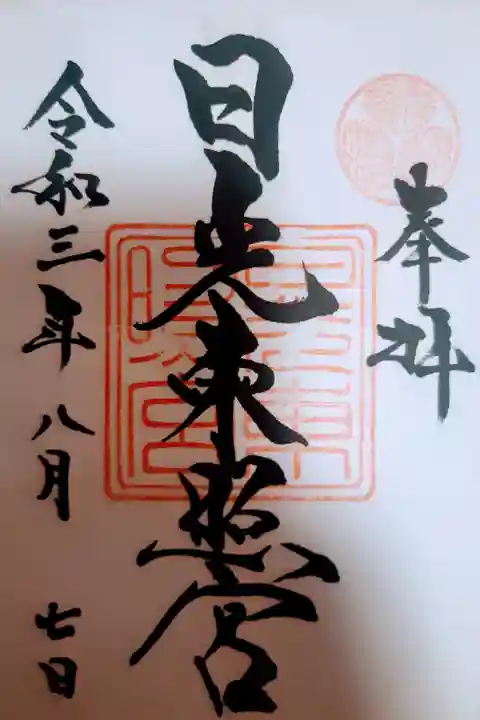 奉拝
日光東照宮
令和三年八月七日